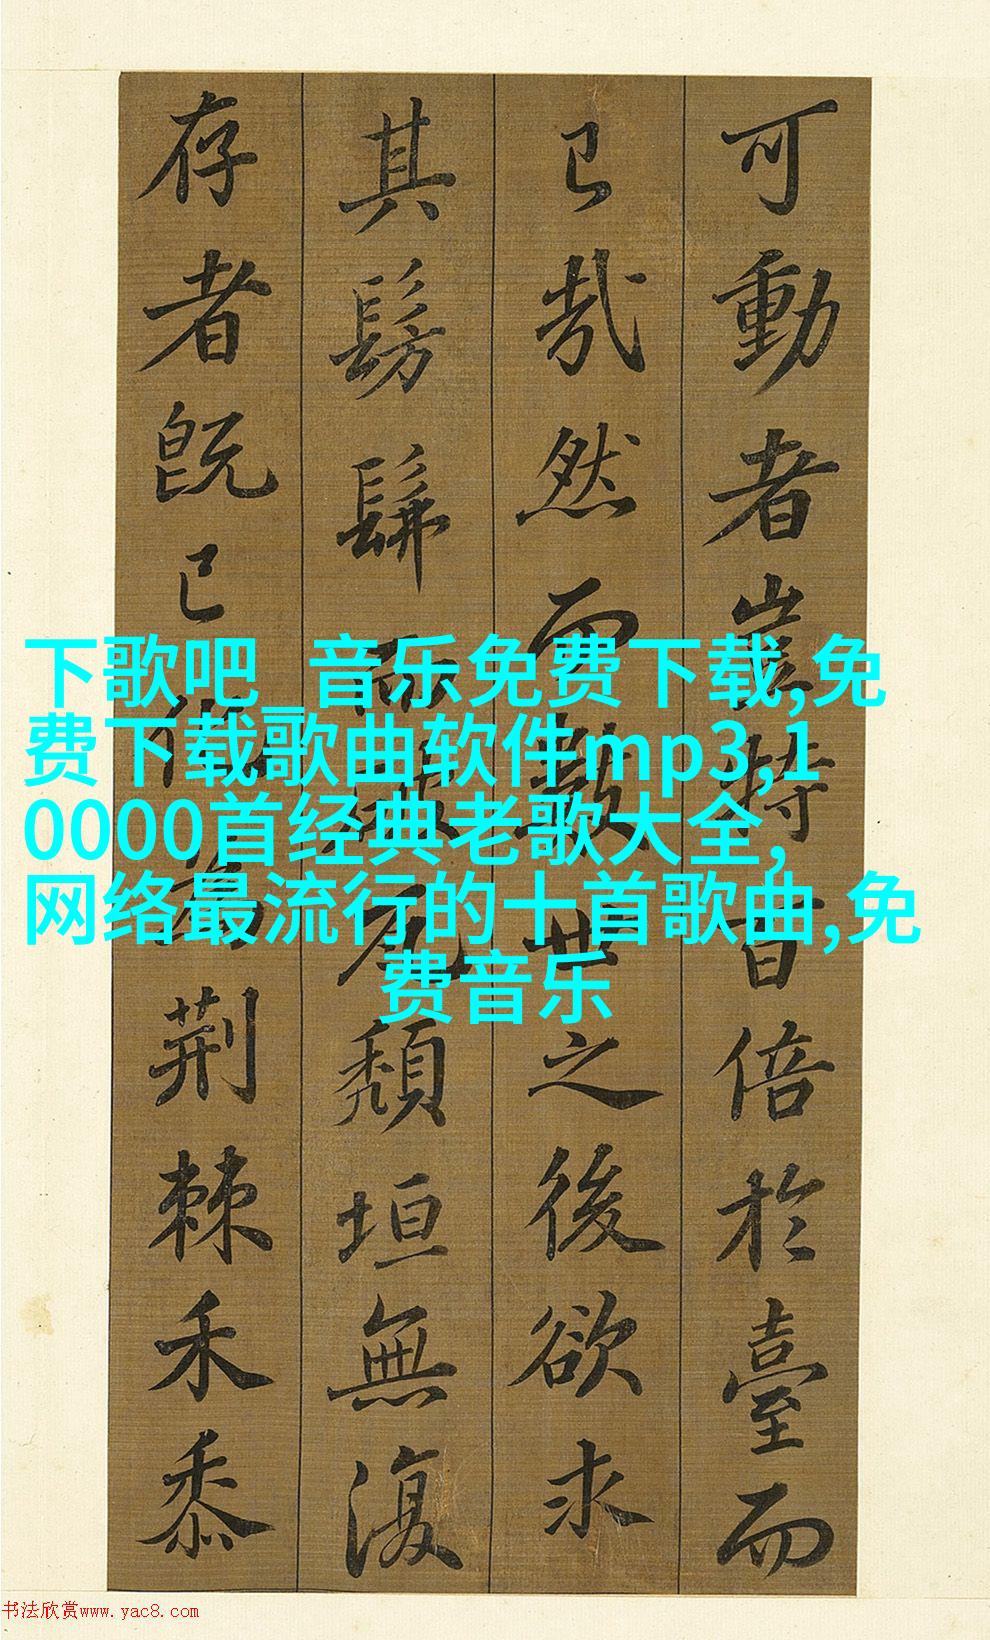 可動者豈特百倍於臺而
已哉然而數世之後欲求
其髣髴而破瓦頹垣無復
存者既已化為荊棘禾黍
下歌吧_音乐免费下载,免
费下载歌曲软件mp3,1
0000首经典老歌大全,
网络最流行的十首歌曲,免
费音乐
书法欣赏www.yac8.com